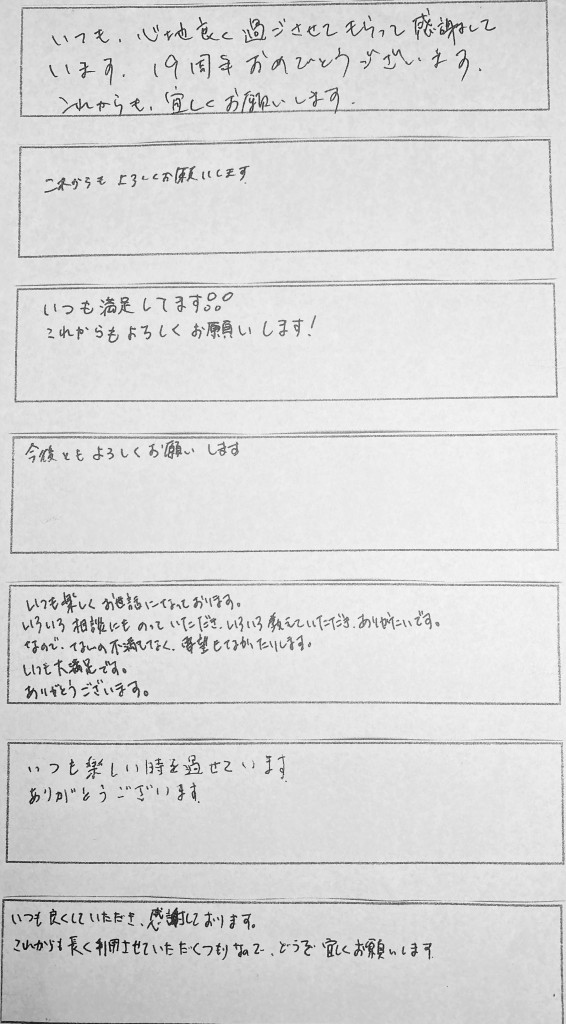 いつも、心地良く過ごさせてもらって感謝して
います。19周年おめでとうございます。
これからも、宜しくお願いします。
これからも よろしくお願いします
いつも満足してます
これからもよろしくお願いします!
今後ともよろしくお願いします
いつも楽しくお世話になっております。
いろいろ相談にものっていただき、いろいろ教えていただき、ありがたいです。
なので、なんの不満もなく、要望もなかたりします。
いつも大満足です。
ありがとうございます。
いつも楽しい時を過せています
ありがとうございます
いつも良くしていただき、感謝しております。
これからも長く利用させていただくつもりなので、どうぞ宜しくお願いします